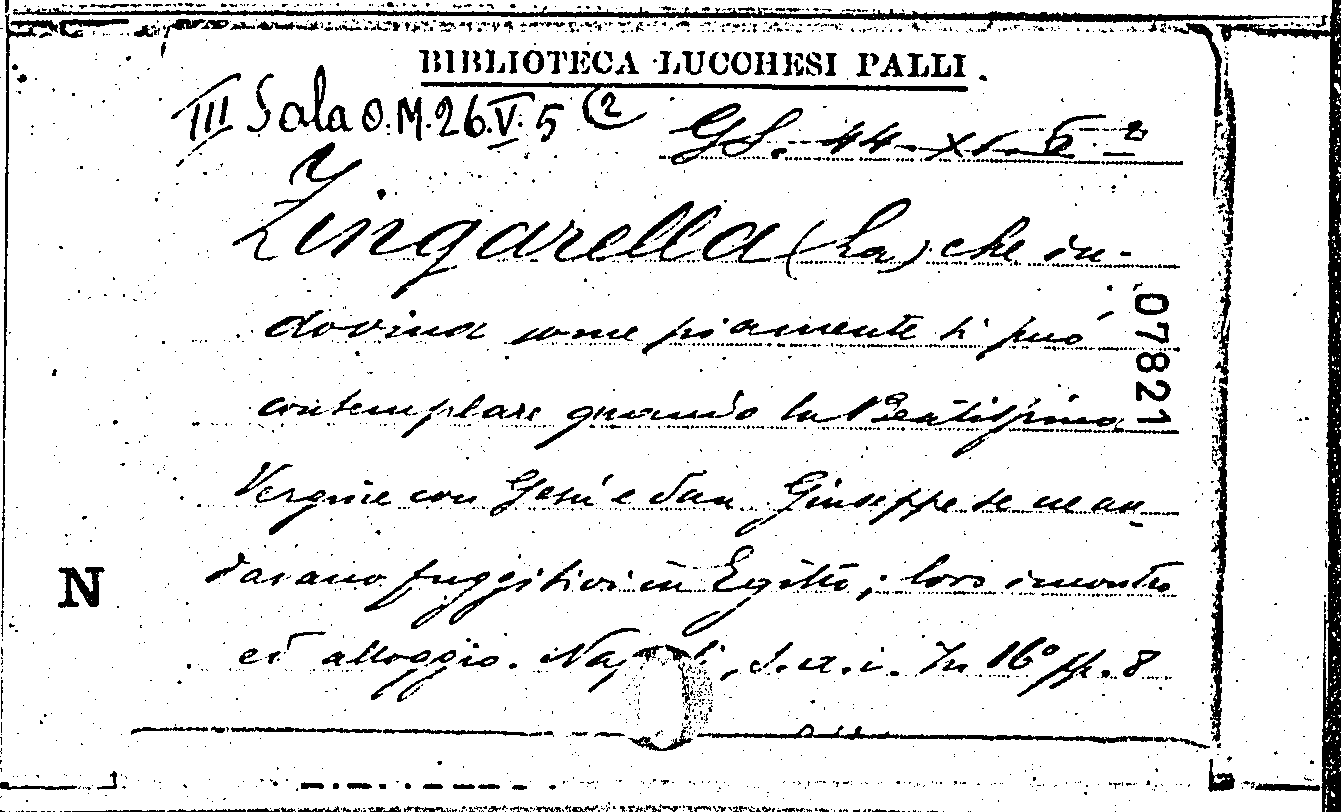 BIBLIOTECA LUCCHESI PALLI
III Sala O.M.26.V.5 (2
GS. 44. XI. 6 2
Zingarella (La) che in-
dovina come piamente si può
contemplare quando la Beatissima
Vergine con Gesù e San Giuseppe se ne an-
darano fuggitivi in Egitto; loro incontro
ed alloggio. Napoli, s.a.i. In 16° pp. 8
07821
N